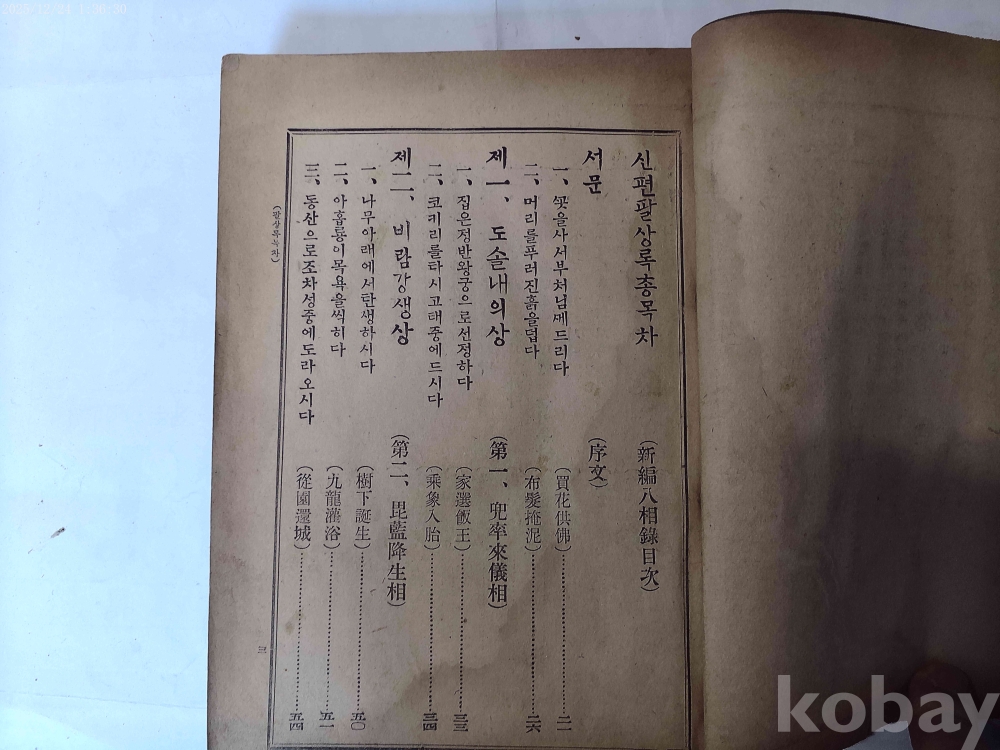 2025/12/21 1:36:30
신편팔상록총목차 (新編八相錄目次)
서문 (序文)
一、꽃을사서부처님께드리다 (買花供佛) 二一
二、머리를푸러진흙을덥다 (布髮掩泥) 二六
제一、도솔내의상 (第一、兜率來儀相)
一、집은정반왕궁으로선정하다 (家選飯王) 三三
二、코키리를타시고태중에드시다 (乘象入胎) 三四
제二、비람강생상 (第二、毘藍降生相)
一、나무아래에서탄생하시다 (樹下誕生) 五〇
二、아홉룡이목욕을씩히다 (九龍灌浴) 五一
三、동산으로조차성중에도라오시다 (從園還城) 五四
(팔상록목차)
三
kobay